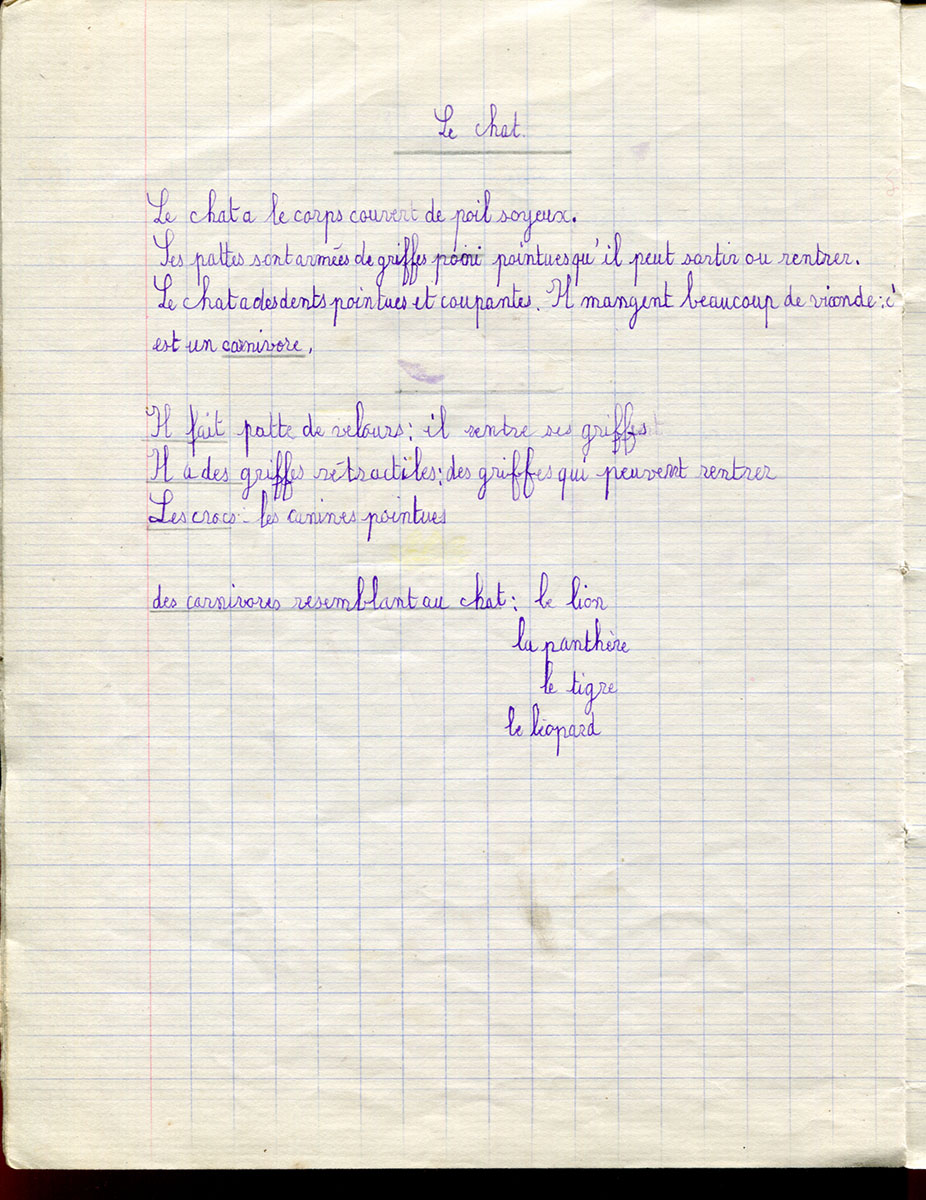 Le chat.
Le chat a le corps couvert de poil soyeux.
Ses pattes sont armées de griffes pointues qu'il peut sortir ou rentrer.
Le chat a des dents pointues et coupantes. Il mangent beaucoup de viande : c'
est un carnivore.
Il fait patte de velours : il rentre ses griffes
Il a des griffes rétractiles : des griffes qui peuvent rentrer
Les crocs : les canines pointues
des carnivores resemblant au chat : le lion
la panthère
le tigre
le léopard